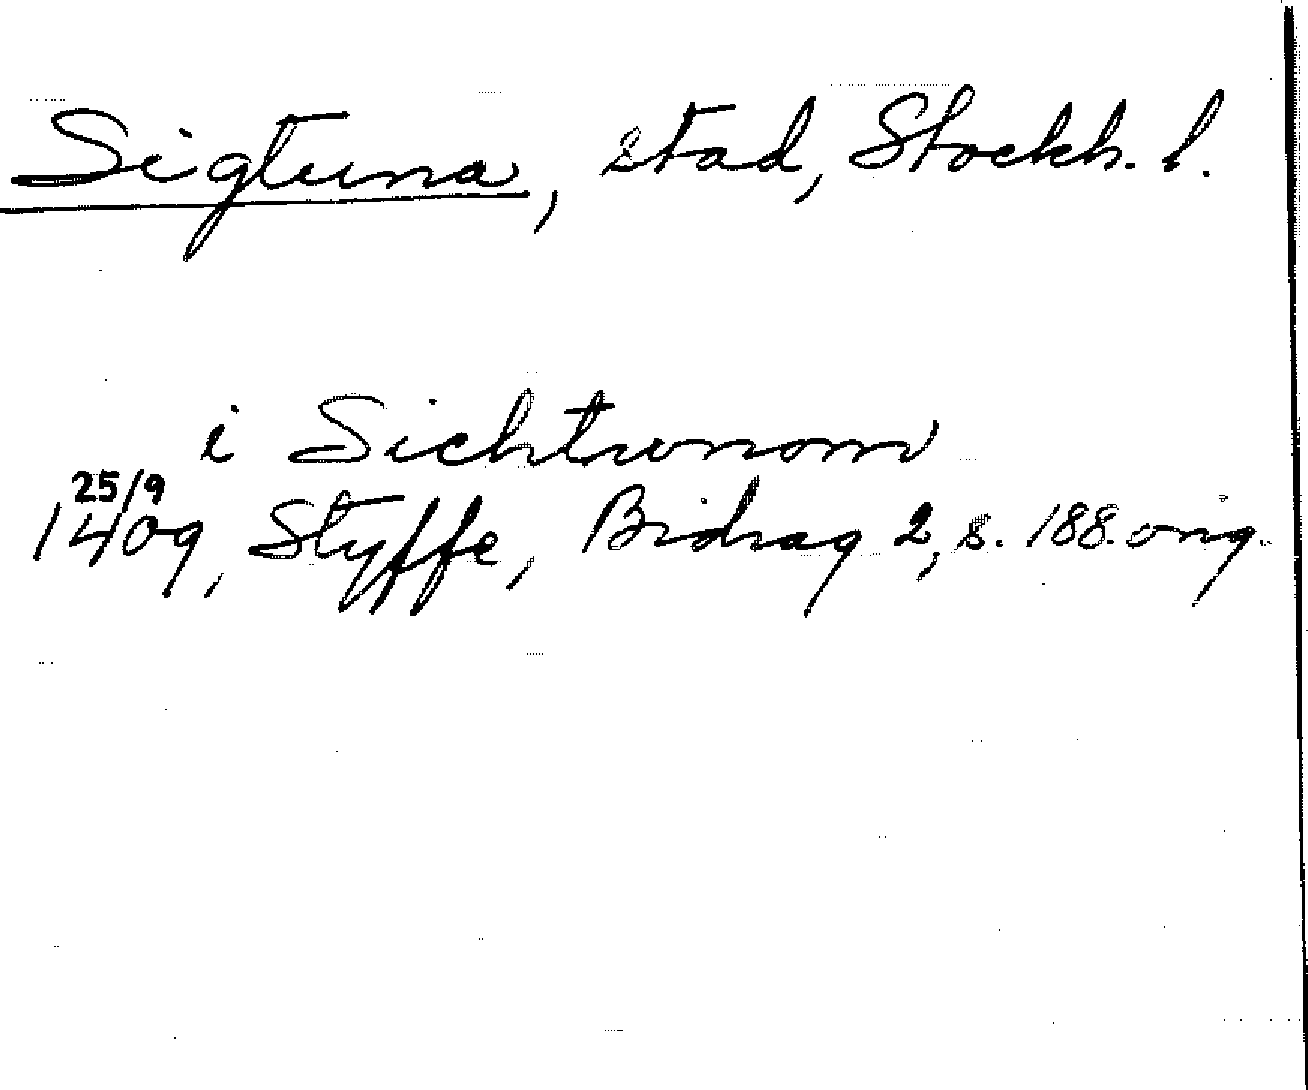 Sigtuna, stad, Stockh. l.
i Sichtunom
25/9
1409, Styffe, Bidrag 2, s. 188. orig.